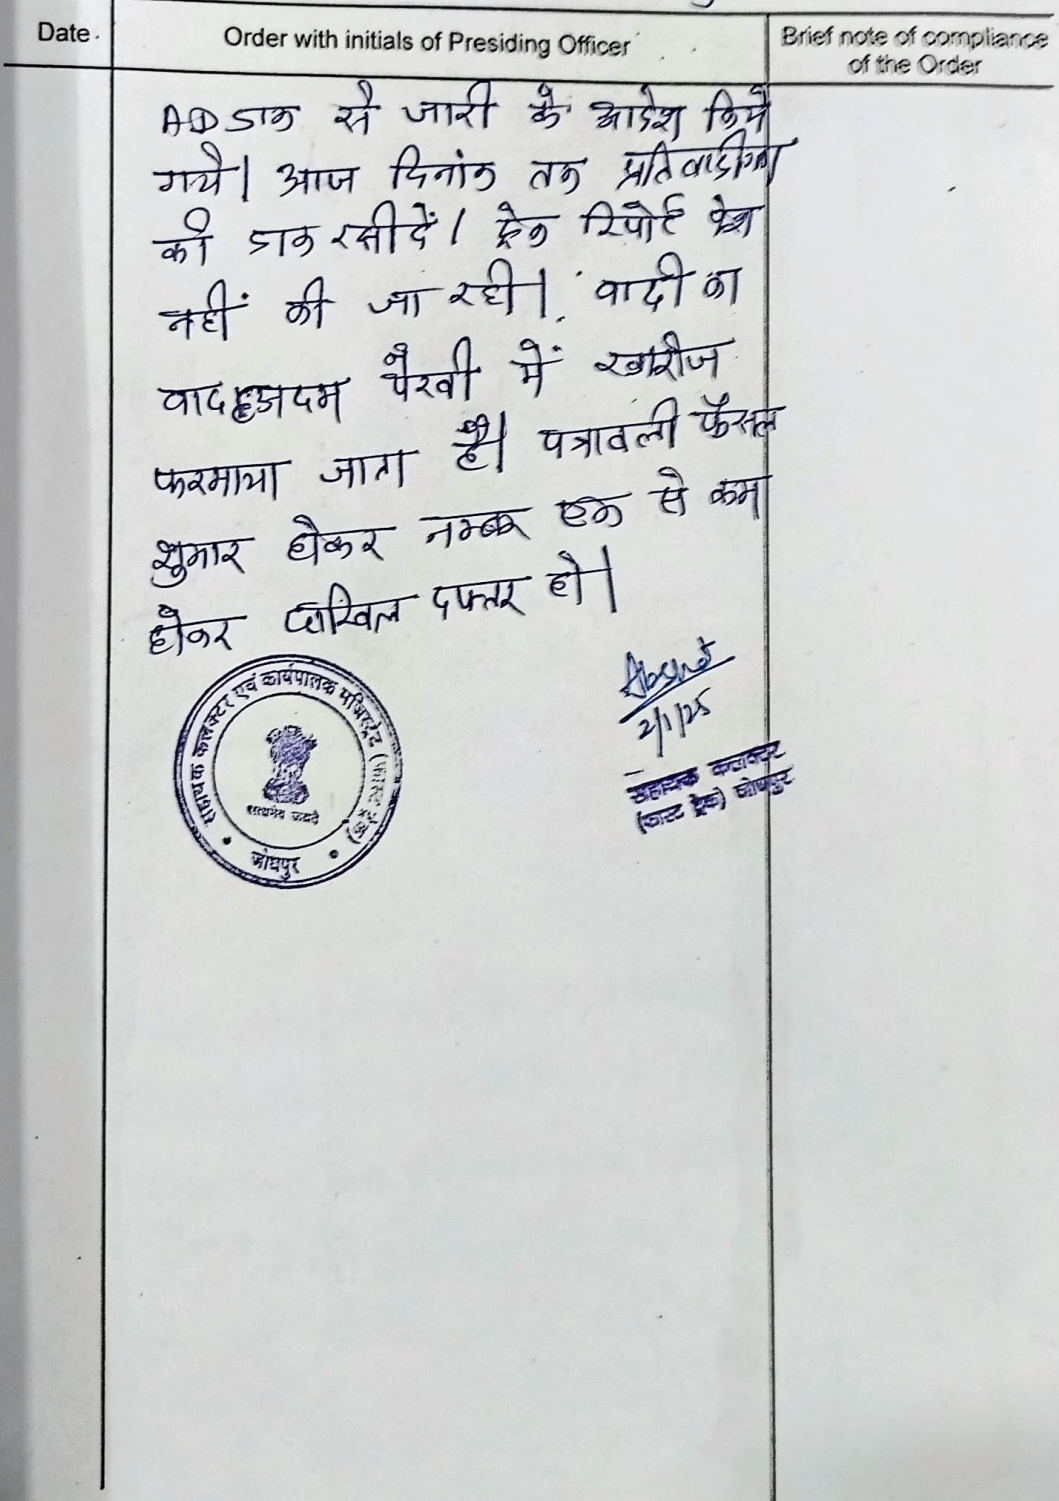 Date
Order with initials of Presiding Officer
Brief note of compliance
of the Order
AD डाक से जारी के आदेश किये
गये। आज दिनांक तक प्रतिवादीगण
की डाक रसीदें / ट्रेक रिपोर्ट पेश
नहीं की जा रही। वादी का
वाद अदम पैरवी में खारीज
फरमाया जाता है। पत्रावली फैसल
शुमार होकर नम्बर एक से कम
होकर दाखिल दफ्तर हो।
2/1/25
सहायक कलक्टर
(फास्ट ट्रेक) जोधपुर
सहायक कलक्टर एवं कार्यपालक मजिस्ट्रेट (फास्ट ट्रेक)
सत्यमेव जयते
जोधपुर